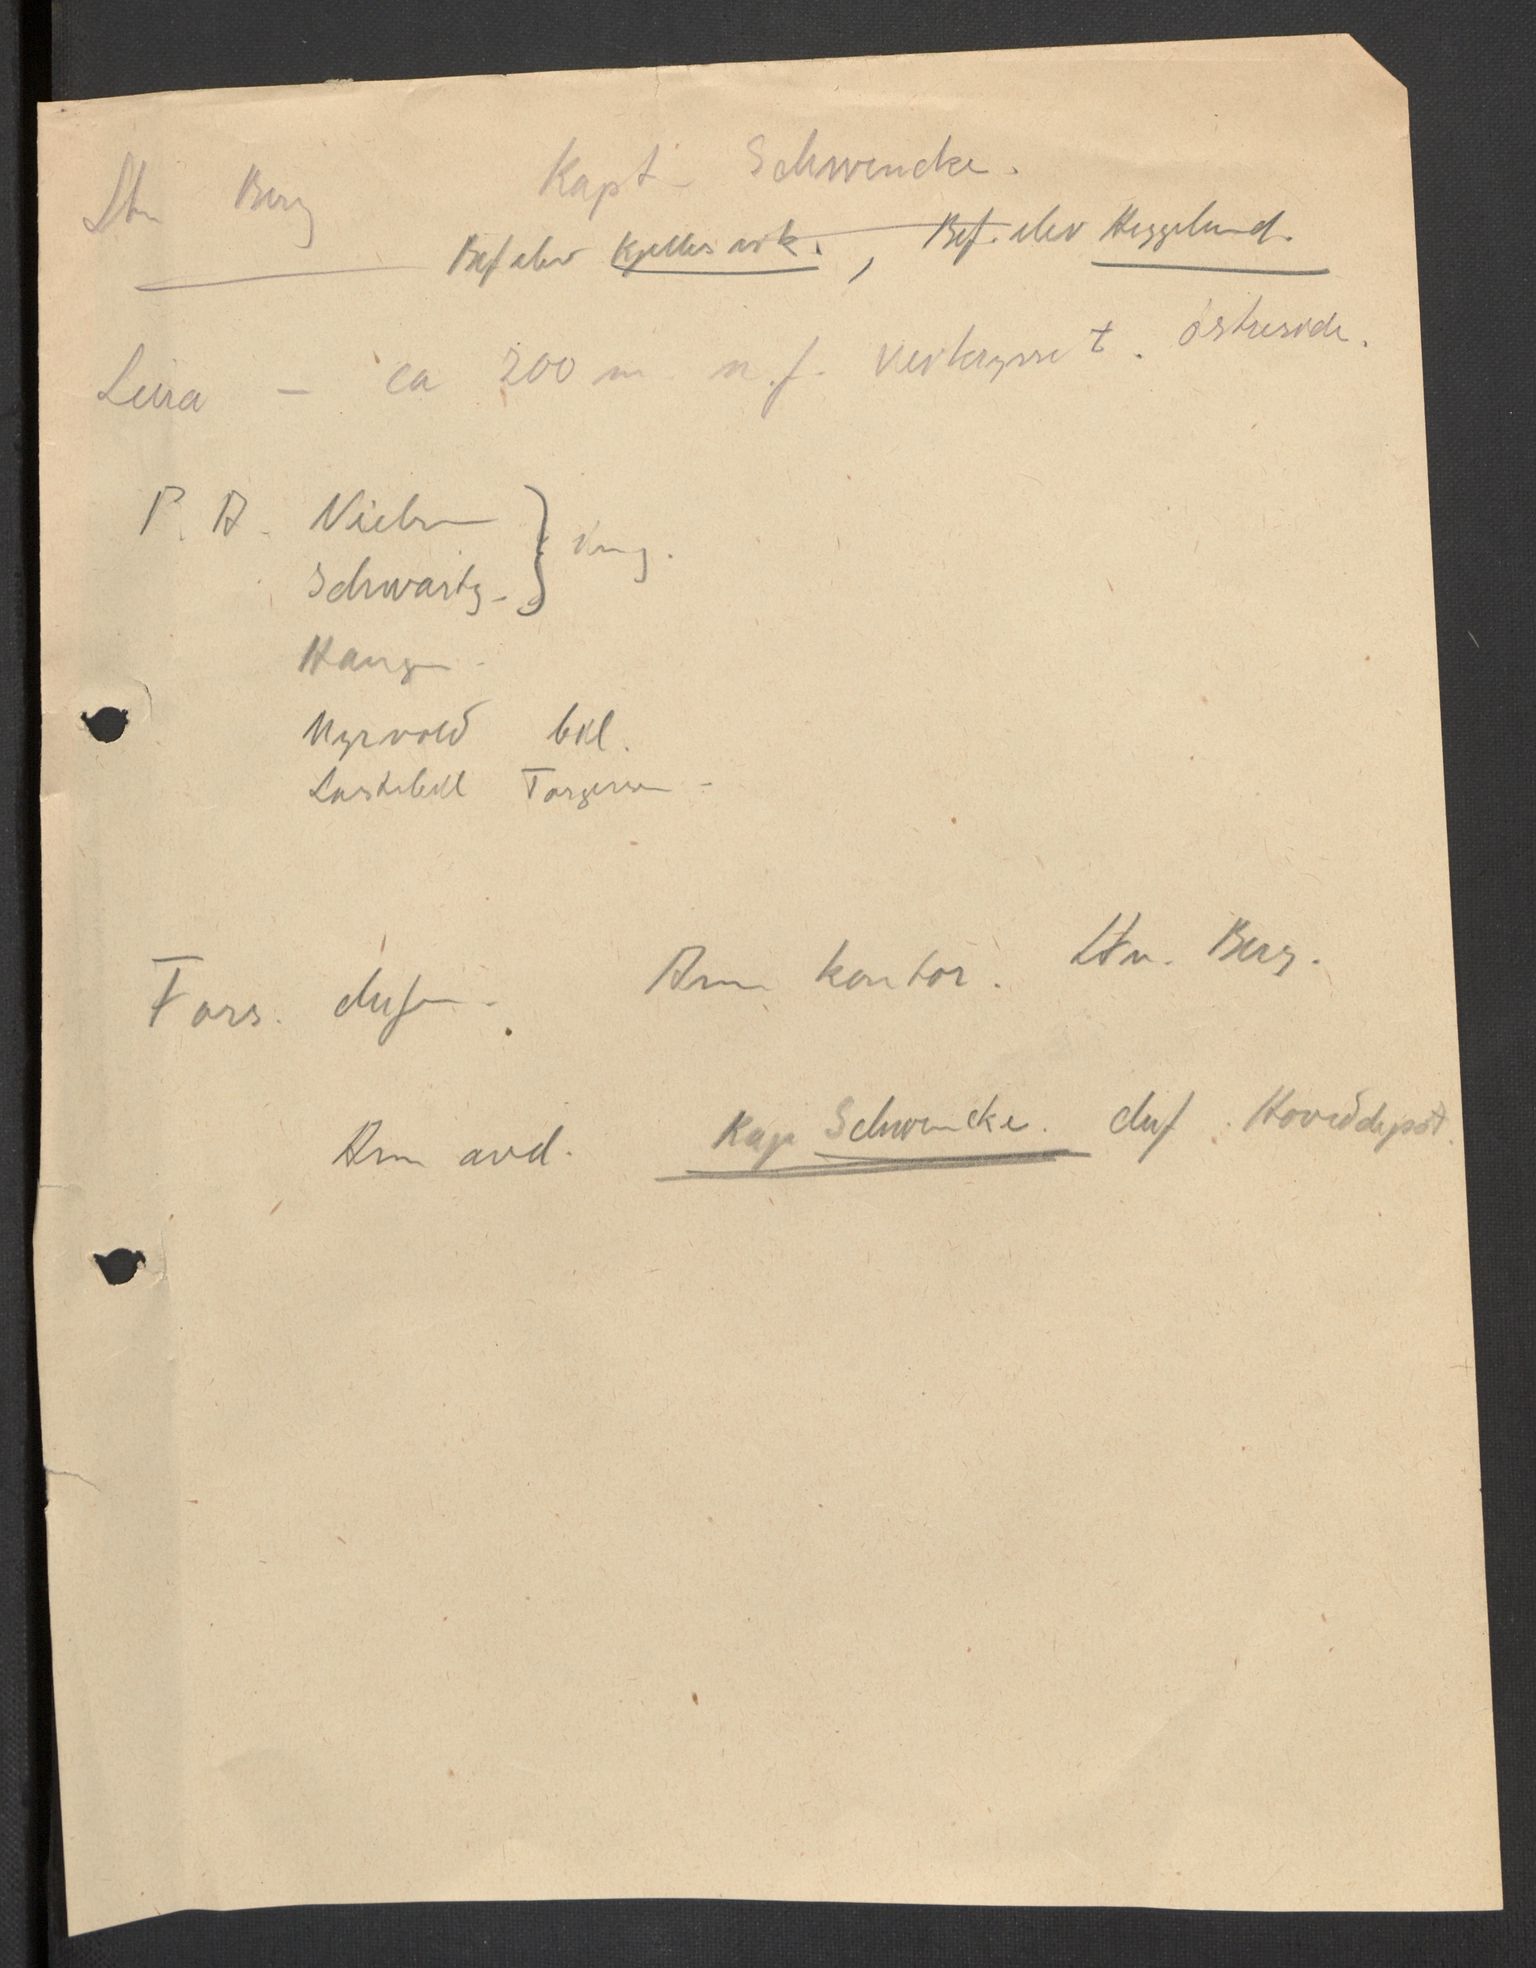 Ltn Berg Kapt. Schwencke.
Bef elev Kjellesvik. , Bef. elev Heggelund.
Leira - ca 200 m n.f. veikrysset. østreside.
P. A. Nielsen } ing.
Schwartz -
Haugen -
Myrvold bkl.
Lastebil Torgersen -
Fors. sjefen. Arm kontor. Ltn. Berg.
Arm avd. Kap Schwencke. sjef. Hoveddepot.